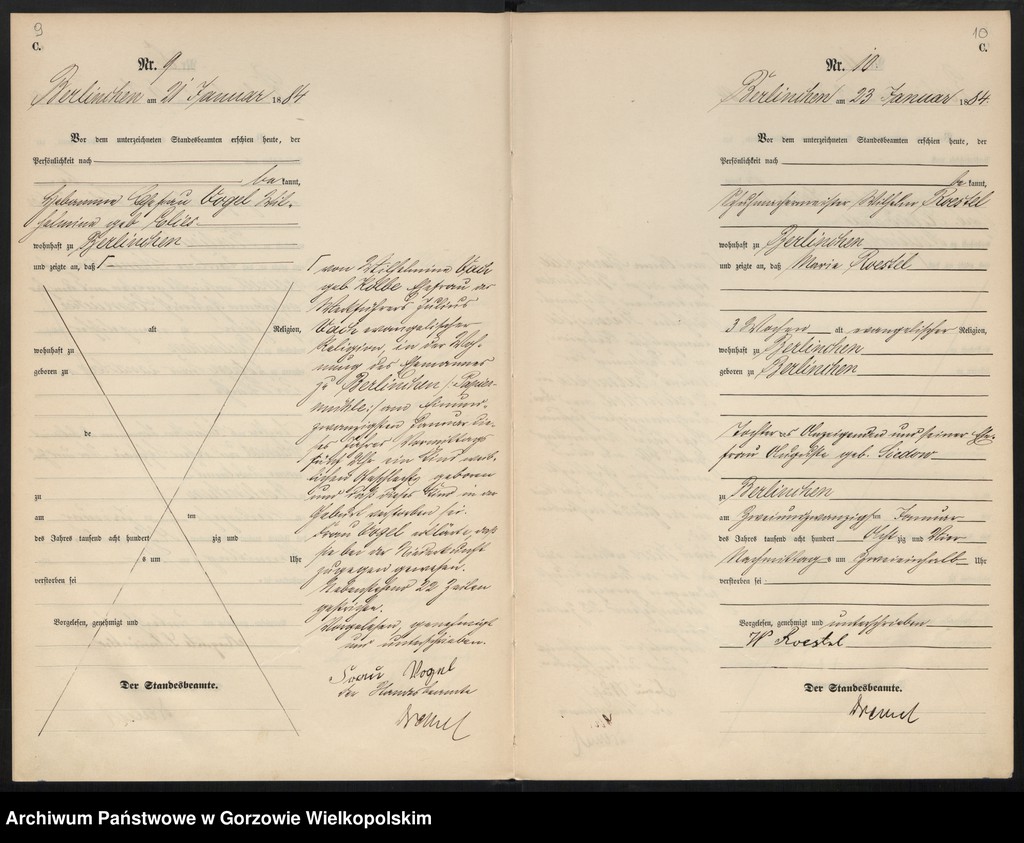 9
C.
Nr. 9
Berlinchen am 21 Januar 1884
Vor dem unterzeichneten Standesbeamten erschien heute, der
Persönlichkeit nach
be kannt,
Hebamme Ehefrau Vogel Wil-
helmine geb
wohnhaft zu Berlinchen
und zeigte an, daß
alt Religion,
wohnhaft zu
geboren zu
de
zu
am ten
des Jahres tausend acht hundert zig und
s um Uhr
verstorben sei
Vorgelesen, genehmigt und
Der Standesbeamte.
von Wilhelmine
geb Kolbe Ehefrau des
Werkführers Julius
evangelischer
Religion, in der Woh-
nung des Ehemannes
zu Berlinchen /: Papier-
mühle :/ am einund-
zwanzigsten Januar die-
ses Jahres Vormittags
Uhr ein Kind weib-
lichen Geschlechts geboren
und daß dieses Kind in der
Geburt verstorben sei.
Frau Vogel erklärte, daß
sie bei der Niederkunft
zugegen gewesen.
Nebenstehend 22 Zeilen
gestrichen.
Vorgelesen, genehmigt
und unterschrieben.
Frau Vogel
Der Standesbeamte
10
C.
Nr. 10
Berlinchen am 23 Januar 1884
Vor dem unterzeichneten Standesbeamten erschien heute, der
Persönlichkeit nach
be kannt,
Schuhmachermeister Wilhelm Roestel
wohnhaft zu Berlinchen
und zeigte an, daß Marie Roestel
3 Wochen alt evangelischer Religion,
wohnhaft zu Berlinchen
geboren zu Berlinchen
Tochter des Anzeigenden und seiner Ehe-
frau Auguste geb. Siedow
zu Berlinchen
am zweiundzwanzigsten Januar
des Jahres tausend acht hundert Acht zig und Vier
Nachmittags um zweieinhalb Uhr
verstorben sei
Vorgelesen, genehmigt und unterschrieben
W Roestel
Der Standesbeamte.
Archiwum Państwowe w Gorzowie Wielkopolskim